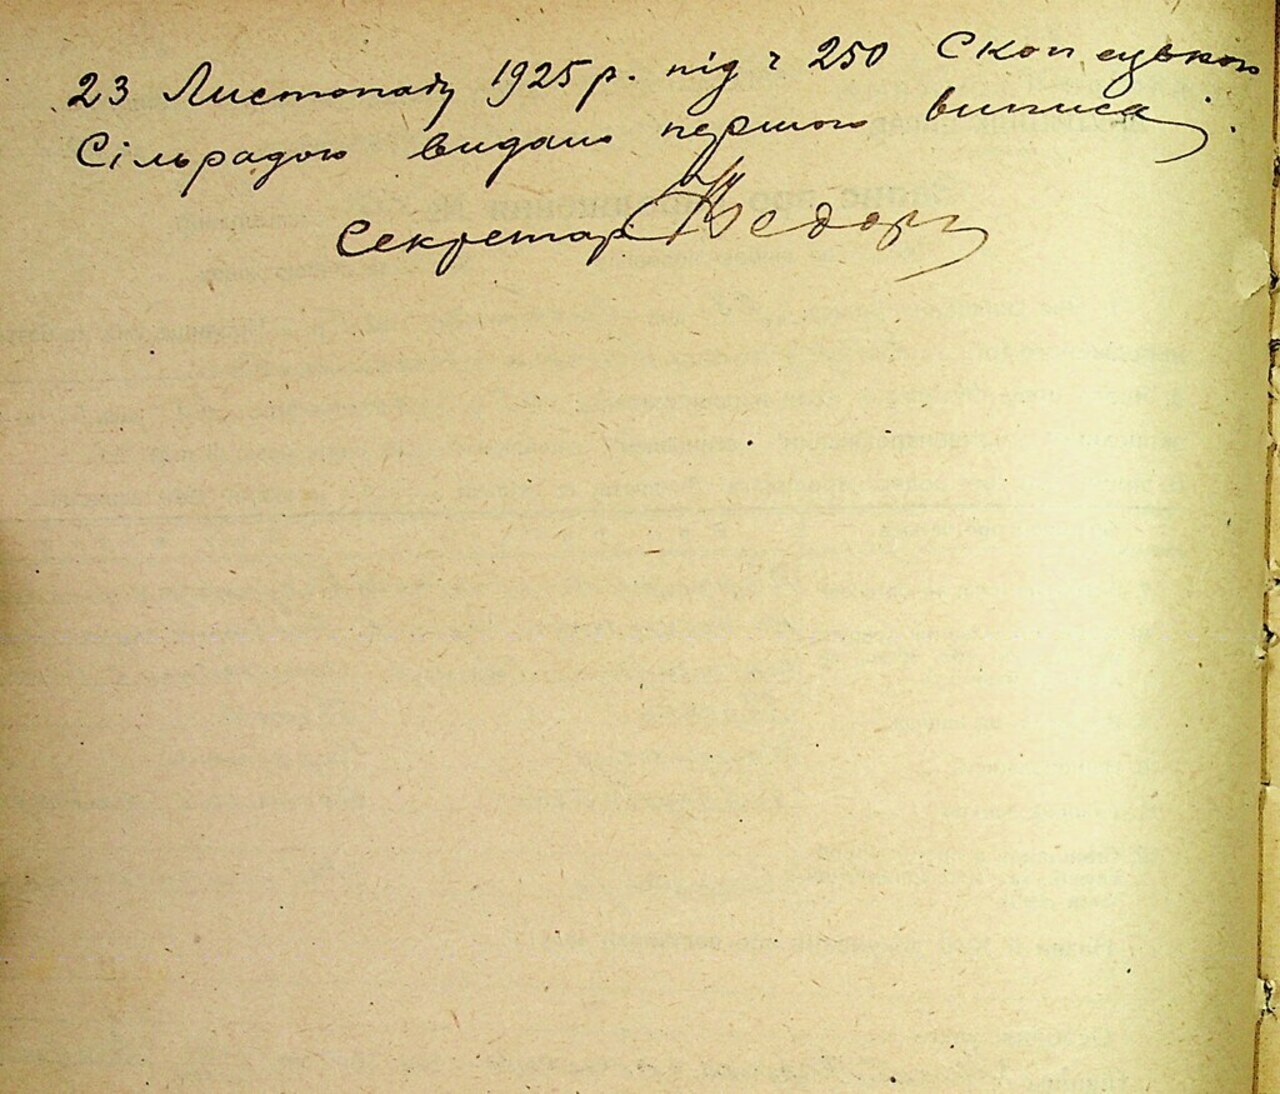 23 Листопаду 1925 р. під ч 250 Скопецькою
Сільрадою видано першого виписа.
Секретар